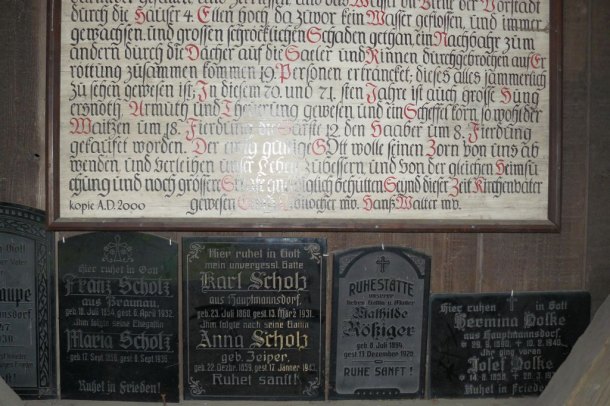 durch die Häuser 4. Ellen hoch, da zwor kein Wasser geflossen, und immer
gewachsen, und grossen schröcklichen Schaden gethan, ein Nachbahr zum
andern durch die Dächer auf die Saeler und Rinnen durchgebrochen auf Er
rottung zusammen kommen 19. Personen ertrancket, dieses alles jämmerlich
zu sehen gewesen ist; In diesem 70. und 71.sten Jahre ist auch grosse Hung
ersnoth Armuth und Theuerung gewesen und ein Scheffel korn, so wohl der
Waitzen um 18. Fierdung die Gärste 12. den Haaber um 8. Fierdung
gekauffet worden. Der gütige GOtt wolle seinen Zorn von uns ab
wenden, und verleihen unser Leben zubessern und von der gleichen Heimsu
chung und noch grössern behütten Seynd dieser Zeit Kirchenvatter
kopie A.D. 2000
gewesen mv. Hanß Walter mv.
Hier ruhet in Gott
Franz Scholz
aus Braunau,
geb. 18. Juli 1854, gest. 6. April 1932.
Ihm folgte seine Ehegattin
Maria Scholz
geb. 17. Sept. 1856, gest. 8. Sept. 1935
Ruhet in Frieden!
Hier ruhet in Gott
mein unvergessl. Gatte
Karl Scholz
aus Hauptmannsdorf,
geb. 23. Juli 1860, gest. 13. März 1931.
Ihm folgte nach seine Gattin
Anna Scholz
geb. Zeiper,
geb. 22. Dezbr. 1859, gest. 17. Jänner 1942.
Ruhet sanft!
RUHESTÄTTE
unserer
lieben Gattin u. Mutter
Mathilde
Rößiger
geb. 8. Juli 1894,
gest. 17. Dezember 1920
RUHE SANFT!
Hier ruhen in Gott
Hermina Polke
aus Hauptmannsdorf,
Ihr ging voran
Josef Polke
Ruhet in Frieden